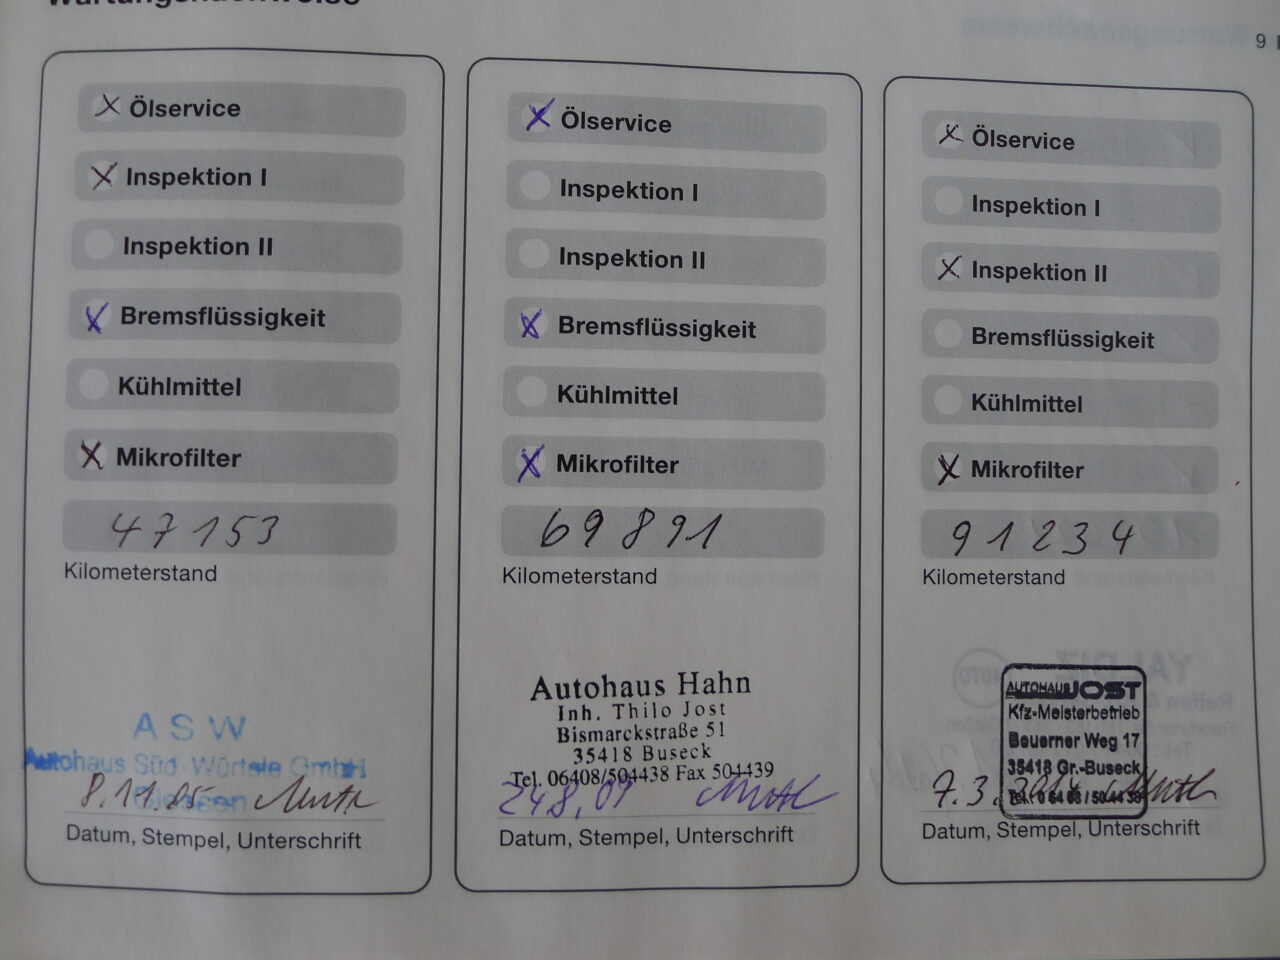 Wartungsnachweise
9
Ölservice
Inspektion I
Inspektion II
Bremsflüssigkeit
Kühlmittel
Mikrofilter
47153
Kilometerstand
A S W
Autohaus Süd-Würtele GmbH
Giessen
8.11.05
Datum, Stempel, Unterschrift
Ölservice
Inspektion I
Inspektion II
Bremsflüssigkeit
Kühlmittel
Mikrofilter
69891
Kilometerstand
Autohaus Hahn
Inh. Thilo Jost
Bismarckstraße 51
35418 Buseck
Tel. 06408/504438 Fax 504439
24.8.09
Datum, Stempel, Unterschrift
Ölservice
Inspektion I
Inspektion II
Bremsflüssigkeit
Kühlmittel
Mikrofilter
91234
Kilometerstand
AUTOHAUS JOST
Kfz-Meisterbetrieb
Beuerner Weg 17
35418 Gr.-Buseck
Tel.: 0 64 08 / 50 44 38
7.3.
Datum, Stempel, Unterschrift